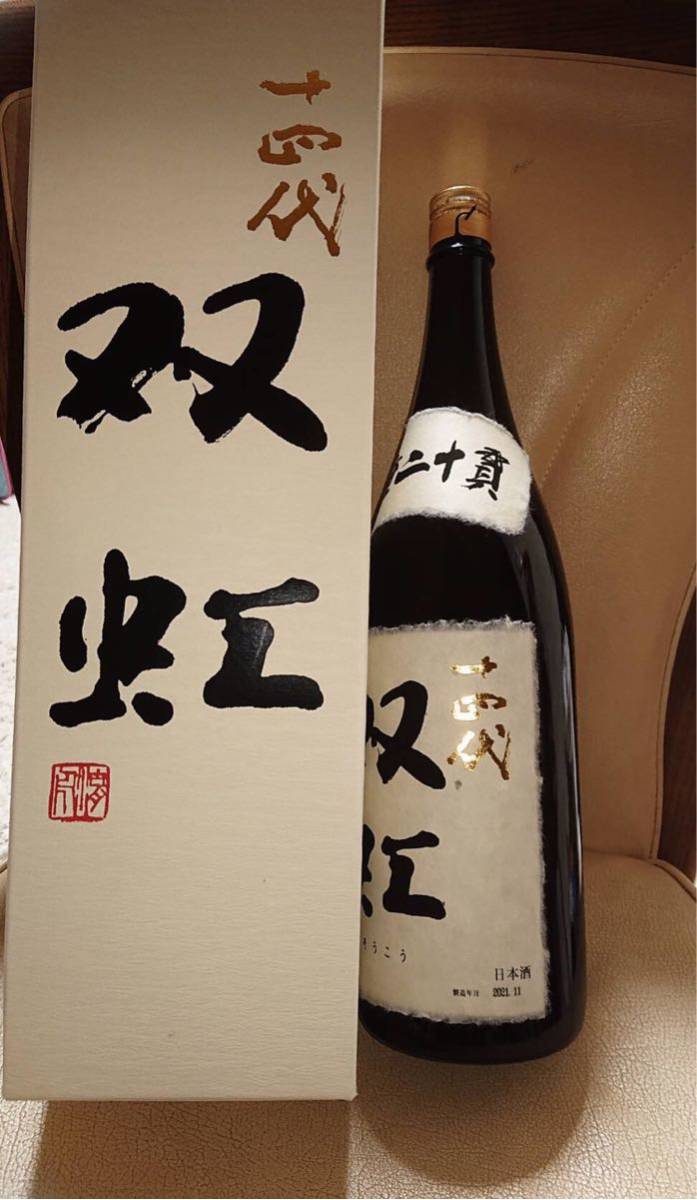 十四代
双虹
十四代
双虹
そうこう
日本酒
製造年月 2021.11
二十貫